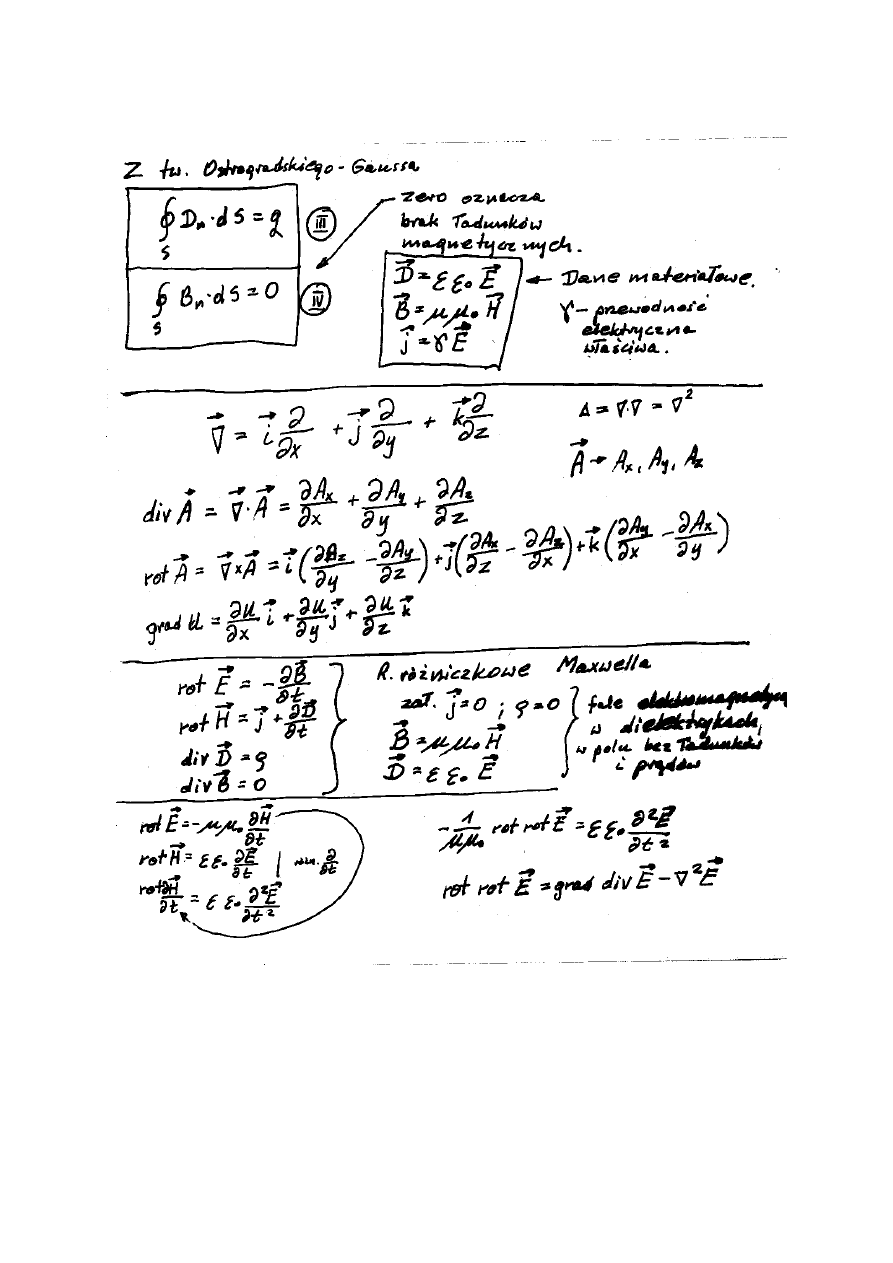 Z tw. Ostrogradskiego-Gaussa
∮_S Dₙ·dS = q (III)
∮_S Bₙ·dS = 0 (IV)
zero oznacza
brak ładunków
magnetycznych.
D⃗ = ε ε₀ E⃗
B⃗ = μ μ₀ H⃗
j⃗ = γ E⃗
← Dane materiałowe.
γ - przewodność
elektryczna
właściwa.
∇⃗ = i⃗ ∂/∂x + j⃗ ∂/∂y + k⃗ ∂/∂z
Δ = ∇·∇ = ∇²
A⃗ → Ax, Ay, Az
div A⃗ = ∇⃗·A⃗ = ∂Ax/∂x + ∂Ay/∂y + ∂Az/∂z
rot A⃗ = ∇⃗×A⃗ = i⃗(∂Az/∂y - ∂Ay/∂z) + j⃗(∂Ax/∂z - ∂Az/∂x) + k⃗(∂Ay/∂x - ∂Ax/∂y)
grad U = ∂U/∂x i⃗ + ∂U/∂y j⃗ + ∂U/∂z k⃗
rot E⃗ = -∂B⃗/∂t
rot H⃗ = j⃗ + ∂D⃗/∂t
div D⃗ = ρ
div B⃗ = 0
R. różniczkowe Maxwella
zał. j⃗=0 ; ρ=0
B⃗ = μ μ₀ H⃗
D⃗ = ε ε₀ E⃗
fale
w dielektrykach,
w polu bez ładunków
i prądów
rot E⃗ = -μ μ₀ ∂H⃗/∂t
rot H⃗ = ε ε₀ ∂E⃗/∂t | ∂/∂t
rot ∂H⃗/∂t = ε ε₀ ∂²E⃗/∂t²
-1/μμ₀ rot rot E⃗ = ε ε₀ ∂²E⃗/∂t²
rot rot E⃗ = grad div E⃗ - ∇²E⃗